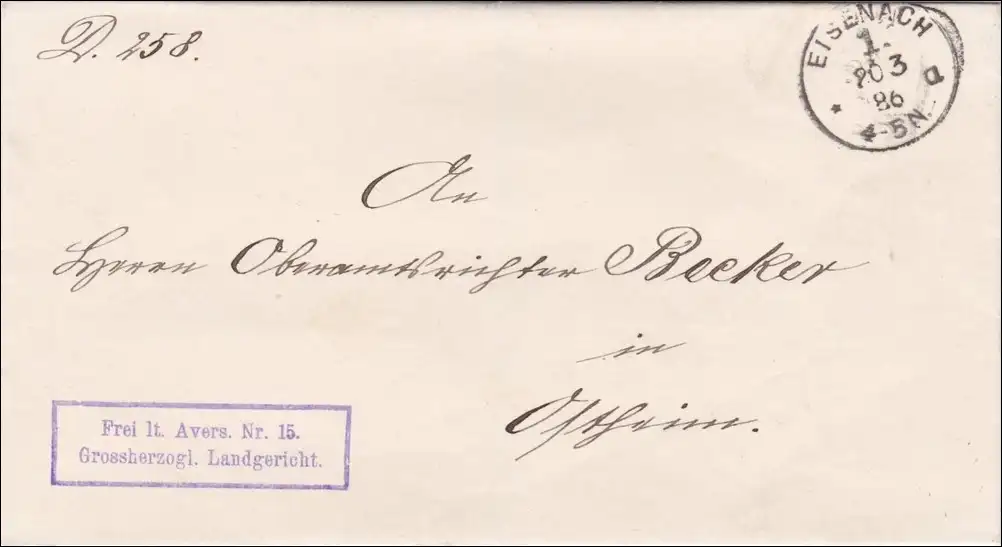 D. 258.
EISENACH
1.
20 3
86
* 4-5N. d
An
Herrn Oberamtsrichter Becker
in
Ostheim.
Frei lt. Avers. Nr. 15.
Grossherzogl. Landgericht.